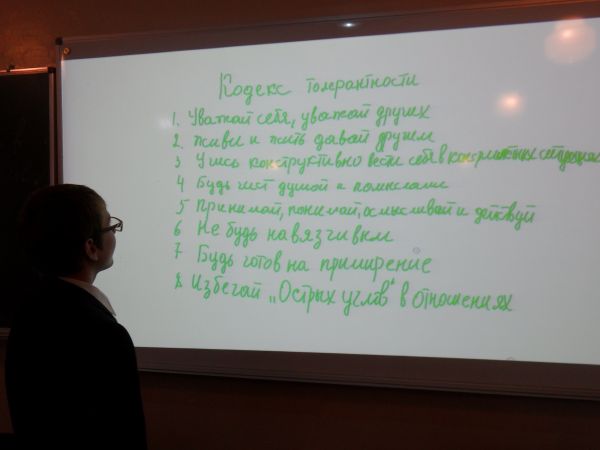 Кодекс толерантности
1. Уважай себя, уважай других
2 живи и жить давай другим
3 Учись конструктивно вести себя в конфликтных ситуациях
4 Будь чист душой и помыслами
5 Принимай, понимай, осмысливай и действуй
6 Не будь навязчивым
7 Будь готов на примирение
8 Избегай „Острых углов“ в отношениях